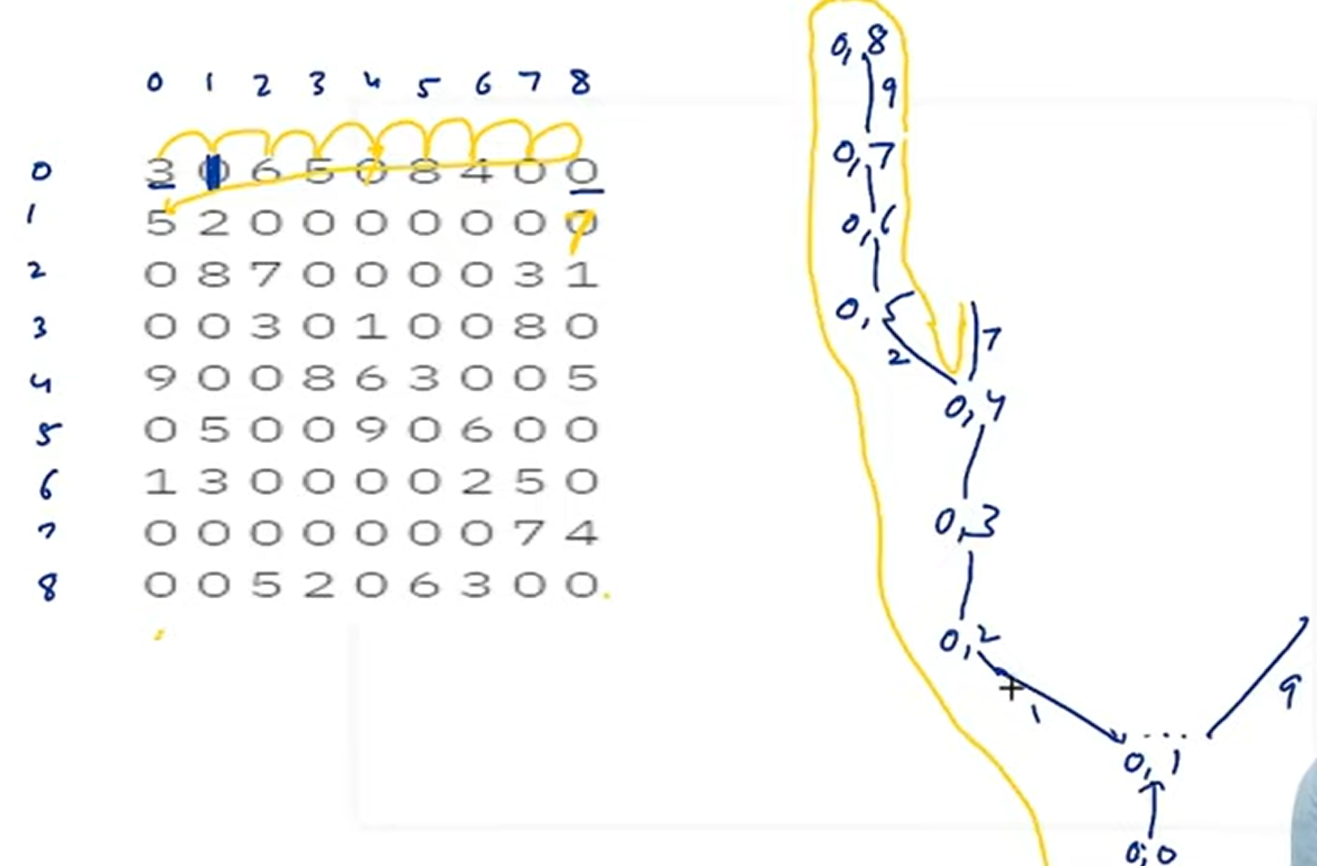 0 1 2 3 4 5 6 7 8
0 3 0 6 5 0 8 4 0 0
1 5 2 0 0 0 0 0 0 0 7
2 0 8 7 0 0 0 0 3 1
3 0 0 3 0 1 0 0 8 0
4 9 0 0 8 6 3 0 0 5
5 0 5 0 0 9 0 6 0 0
6 1 3 0 0 0 0 2 5 0
7 0 0 0 0 0 0 0 7 4
8 0 0 5 2 0 6 3 0 0.
0,8
9
0,7
0,6
0,5
2 7
0,4
0,3
0,2
1 9
0,1
0,0